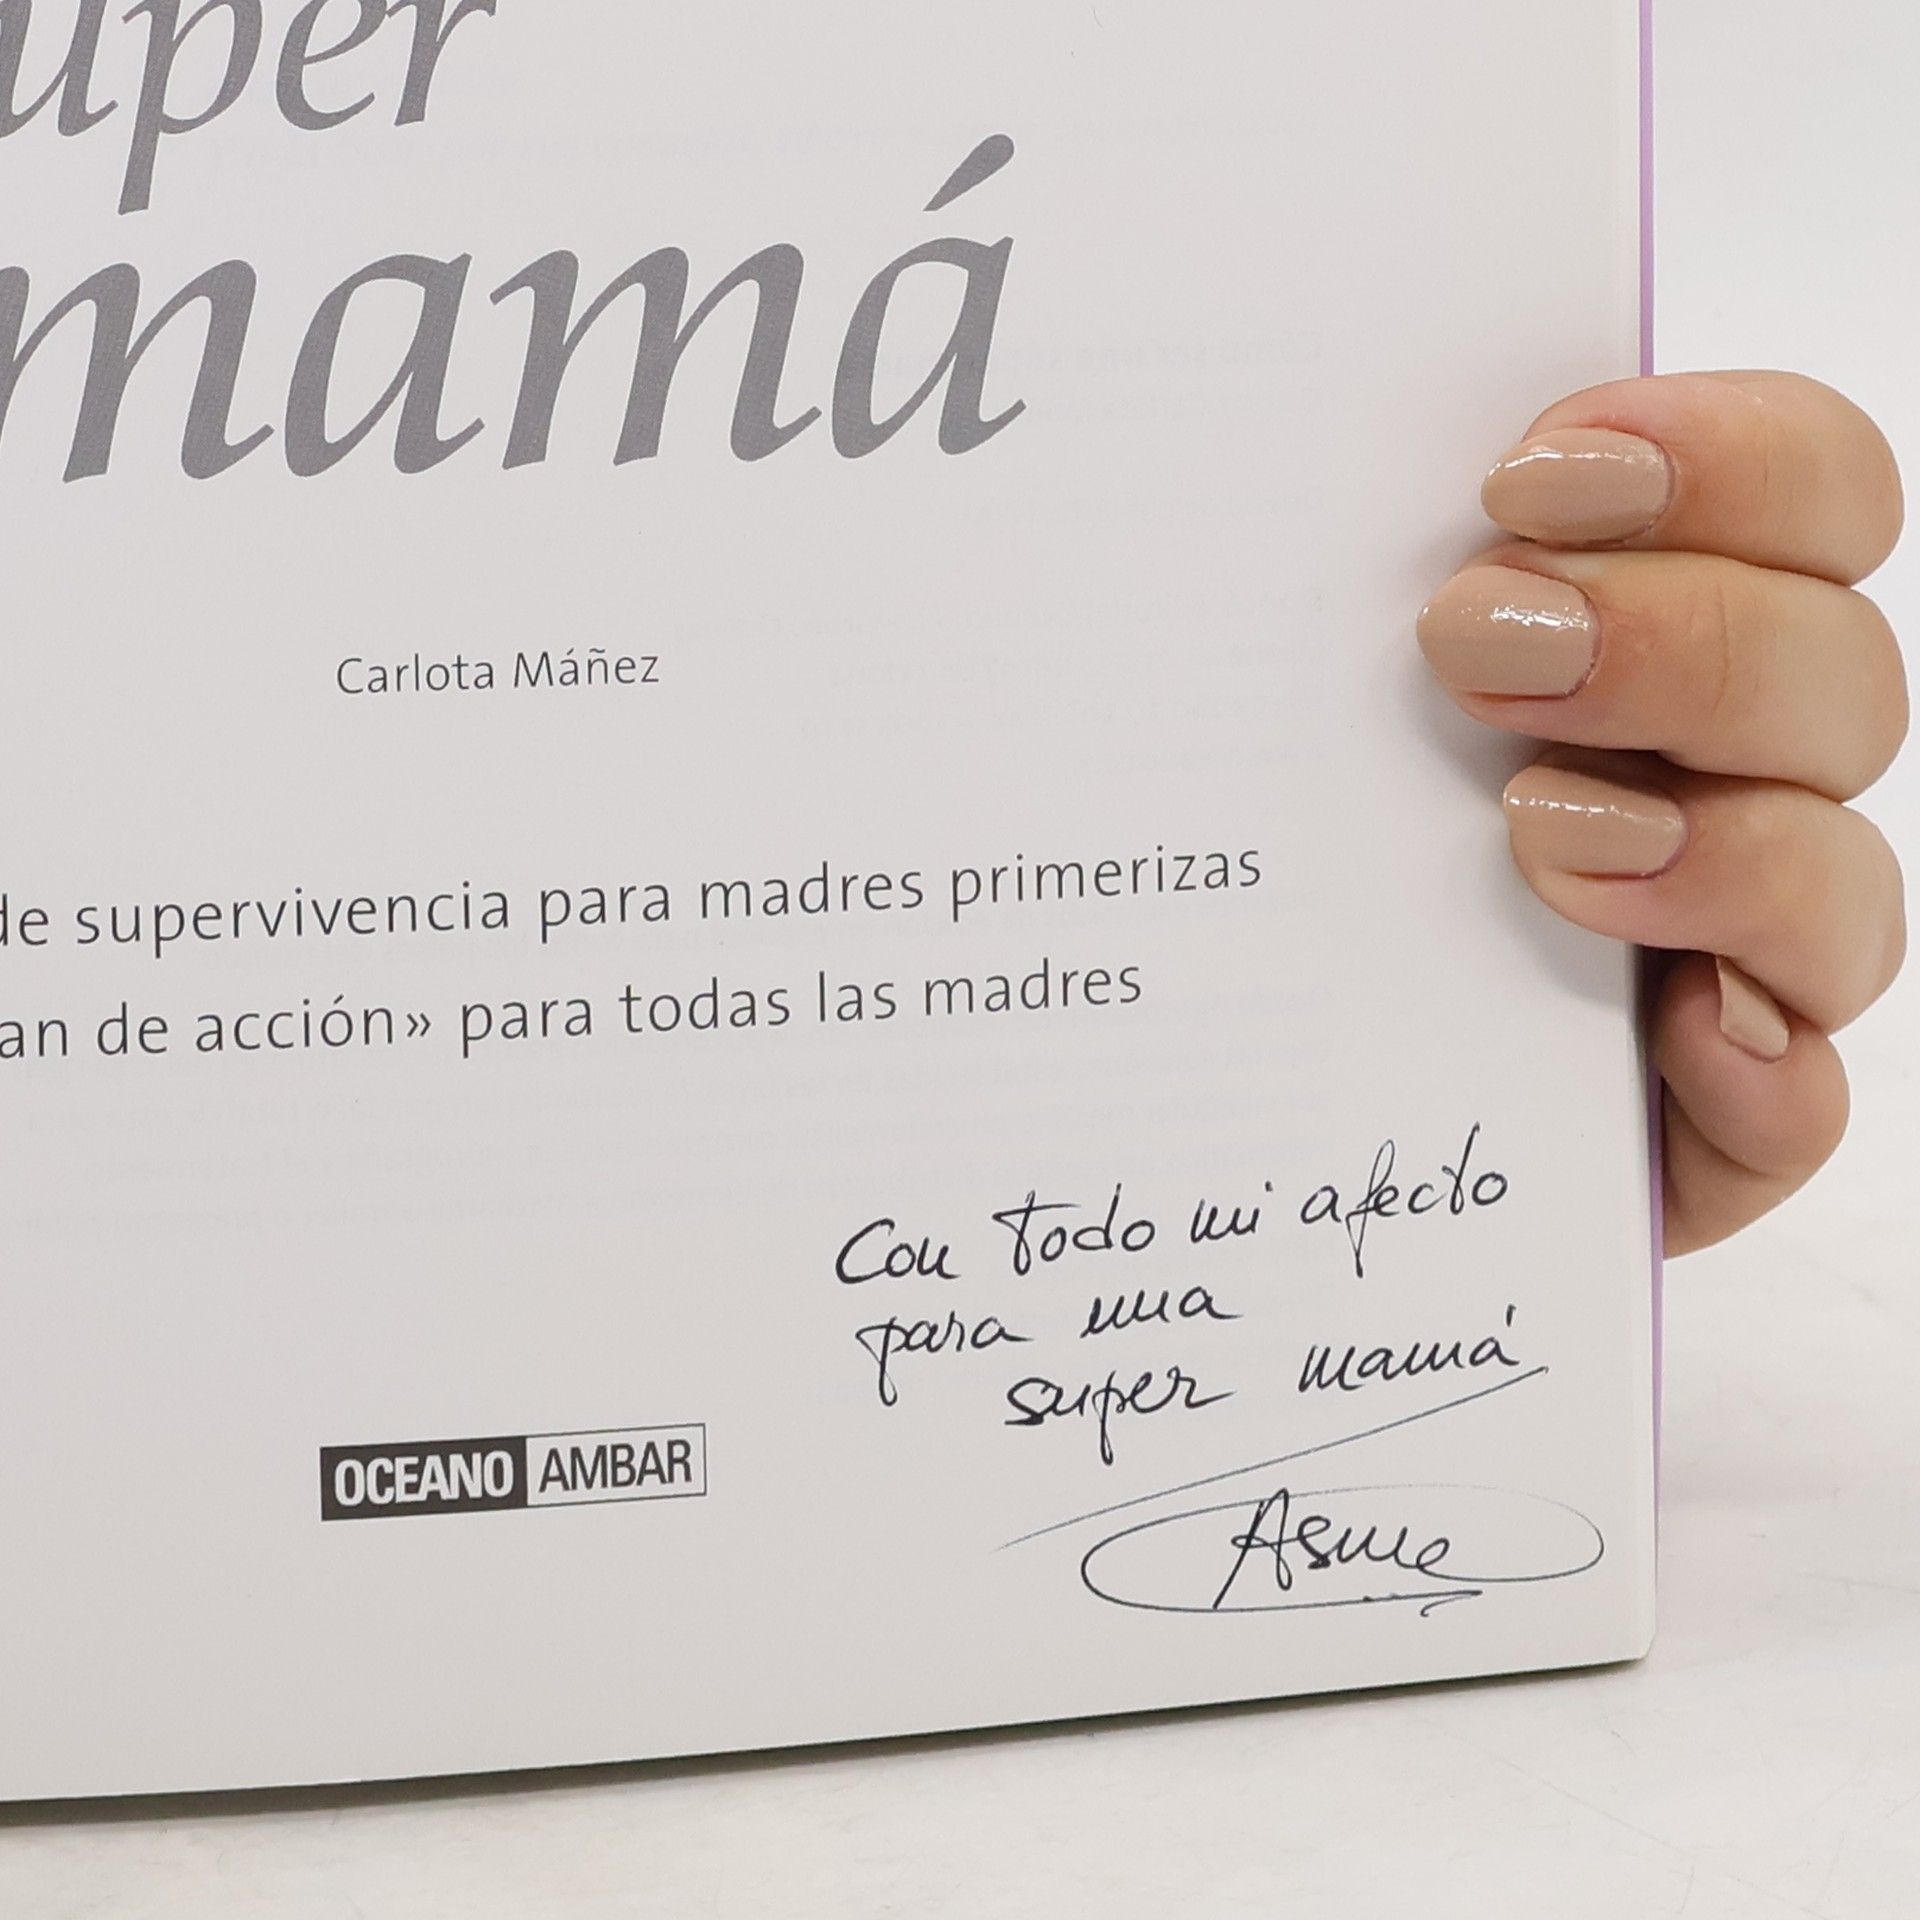 uper
mamá
Carlota Máñez
de supervivencia para madres primerizas
an de acción» para todas las madres
Con todo mi afecto
para una
super mamá
OCEANO AMBAR